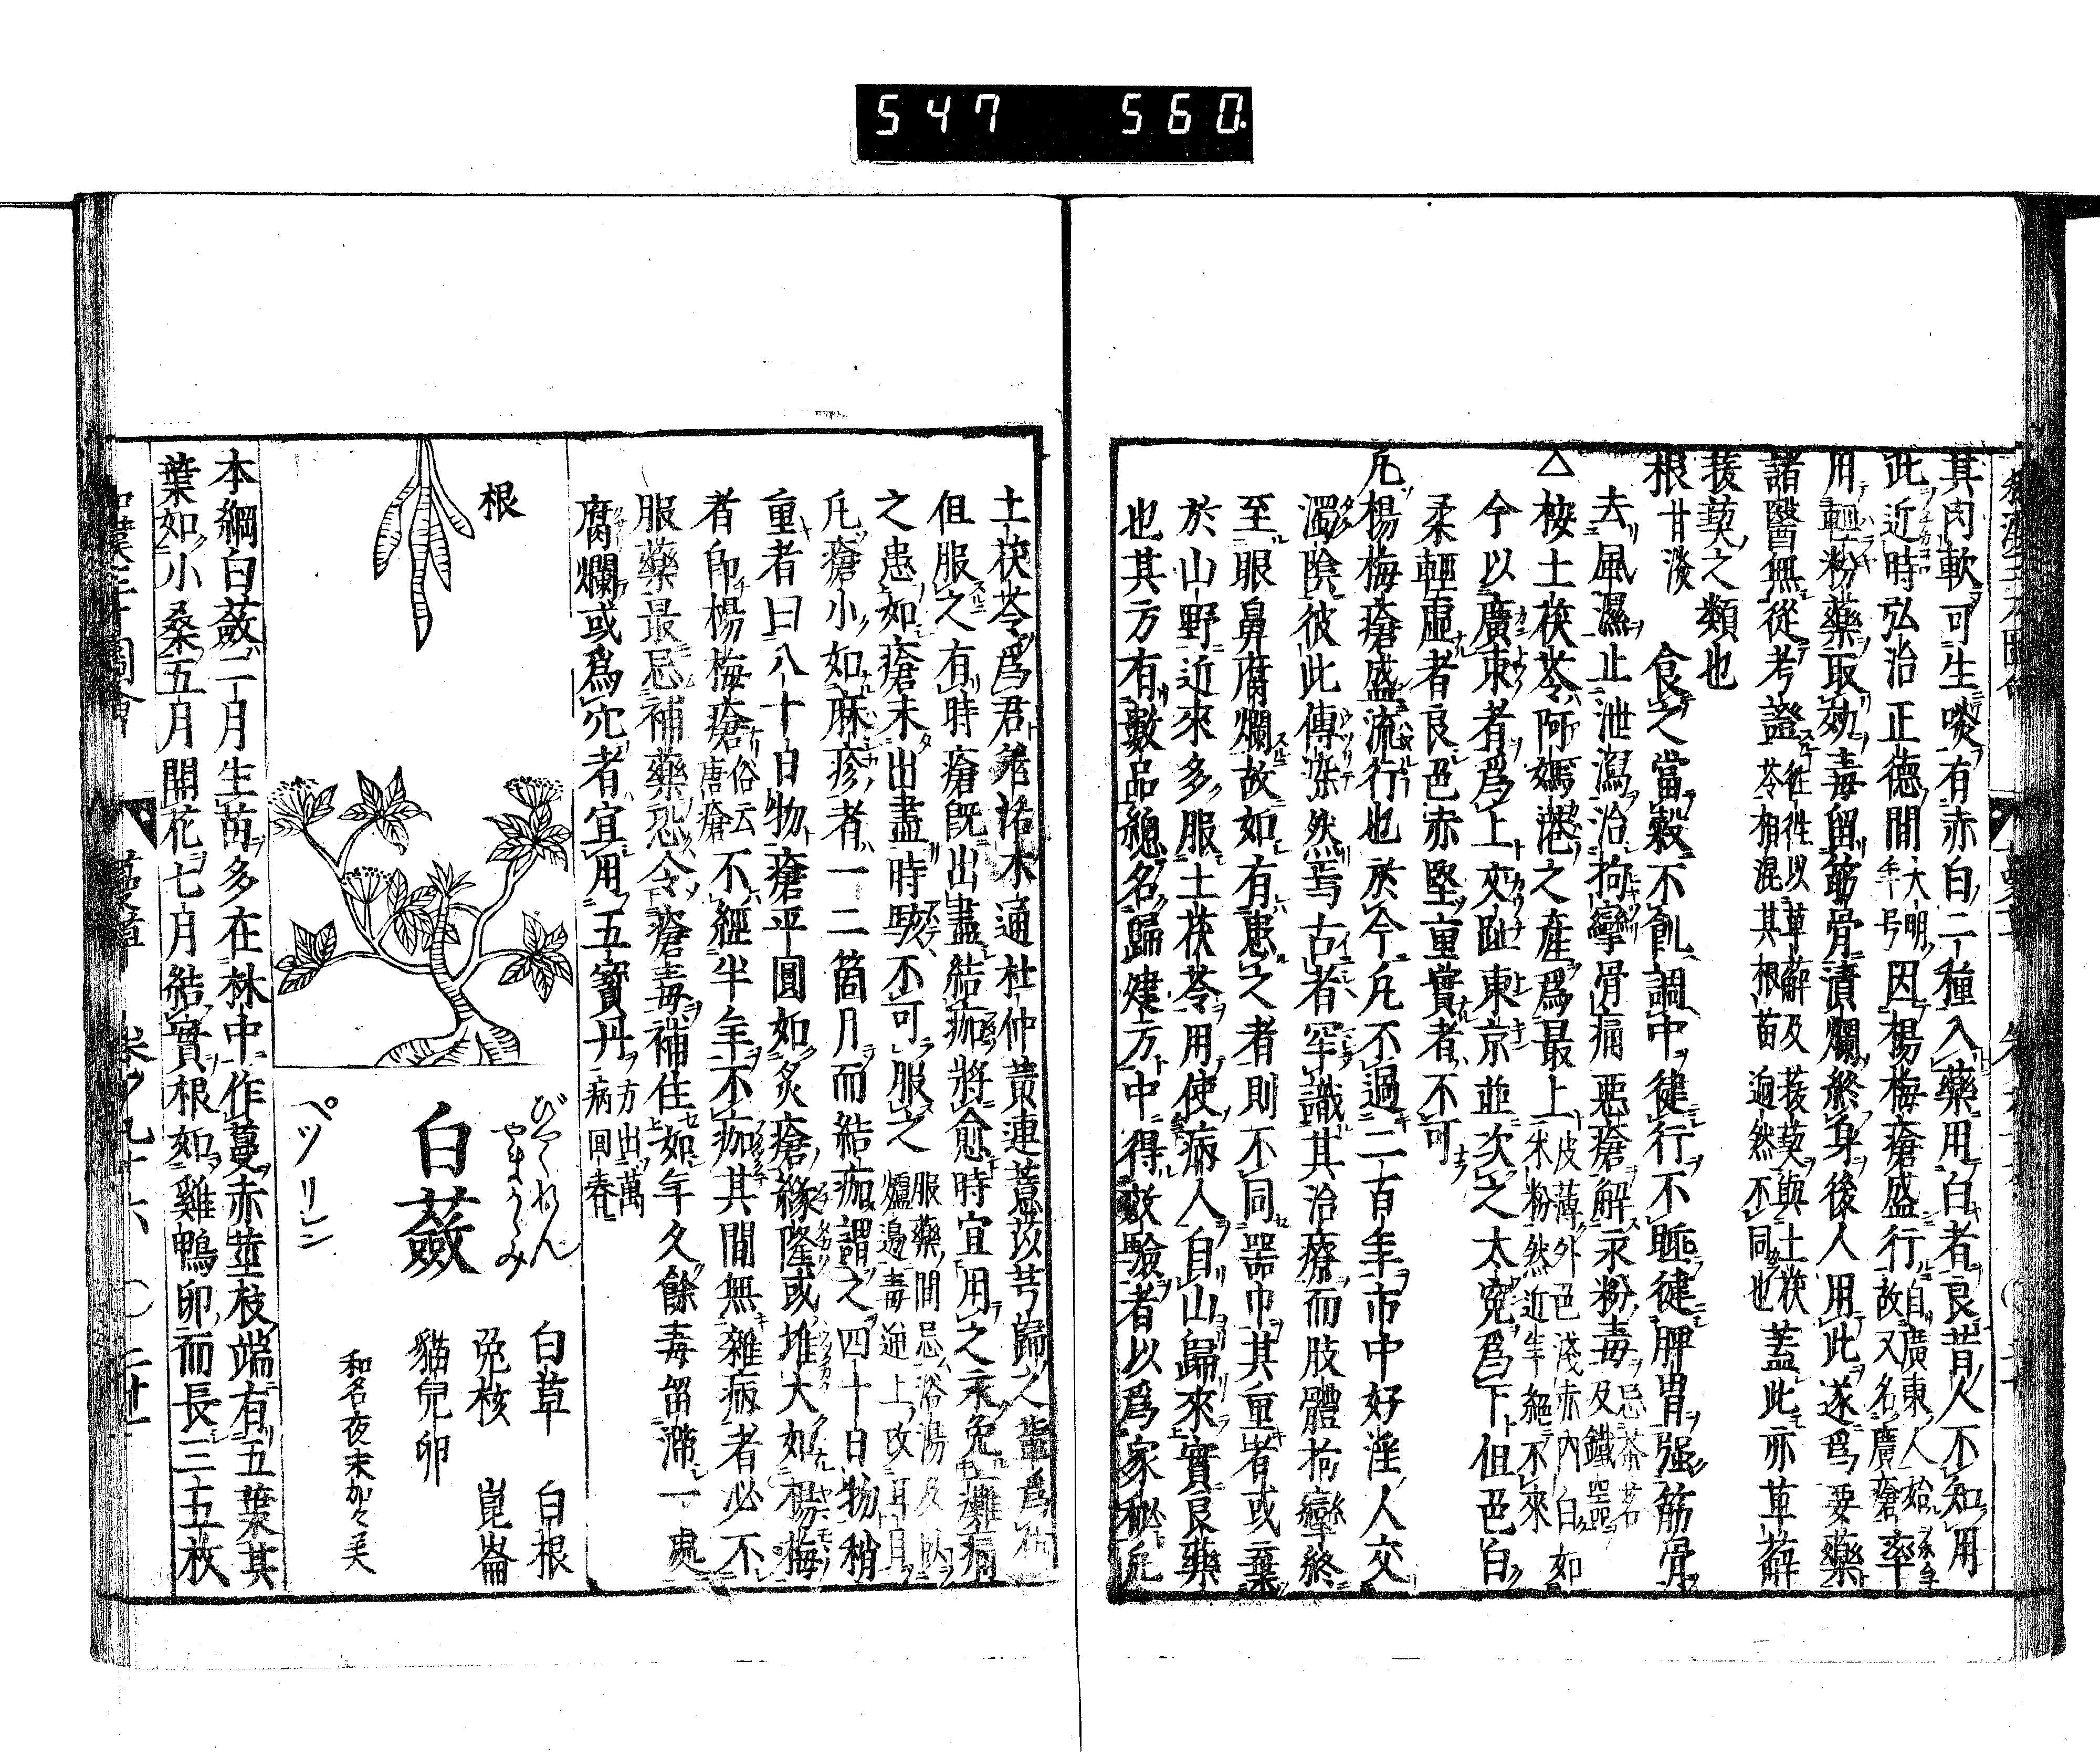 547 560
其肉軟可生啖有赤白二種入藥用白者良昔人不知用
此近時弘治正德間大明年号因楊梅瘡盛行自廣東人始故又名廣瘡率
用輕粉藥取効毒留筋骨潰爛終身後人用此遂爲要藥
諸醫無從考證往往以草薢及菝葜與土茯苓相混其根苗逈然不同也蓋此亦萆薢
菝葜之類也
根甘淡 食之當穀不飢調中徤行不睡徤脾胃强筋骨
去風濕止泄瀉治拘攣骨痛惡瘡解汞粉毒忌茶茗及鐵器
△桉土茯苓阿媽港之産爲最上皮薄外色淺赤内白如米粉然近年絕不來
今以廣東者爲上交趾東京並次之太寃爲下但色白
柔輕虛者良色赤堅重實者不可
凡楊梅瘡盛流行也於今凡不過二百年市中好淫人交
濁陰彼此傳染然焉古者罕識其治療而肢體拘攣終
至眼鼻腐爛故如有患之者則不同器巾其重者或棄
於山野近來多服土茯苓用使病人自山歸來實良藥
也其方有數品總名歸建方中得效驗者以爲家秘
土茯苓爲君
木通杜仲黄連薏苡芎歸之
但服之有時瘡既出盡結痂將愈時宜用之永免
之患如瘡未出盡時駭不可服之服藥間忌浴湯及爐邊毒逆上攻耳目
凡瘡小如麻疹者一二箇月而結痂謂之四十日物稍
重者曰八十日物瘡平圓如炙瘡緣隆或堆大如楊梅
者卽楊梅瘡俗云唐瘡不經半年不痂其間無雜病者必不
服藥最忌補藥恐令瘡毒補住如年久餘毒留滯一處
腐爛或爲穴者宜用五寳丹方出萬病回春
根
びやくれん
やまかゝみ
白蘞
ペツリーン
白草 白根
兔核 崑崙
猫兒卵
和名夜末加々美
本綱白蘞二月生苗多在林中作蔓赤莖枝端有五葉其
葉如小桑五月開花七月結實根如雞鴨卵而長三五枚